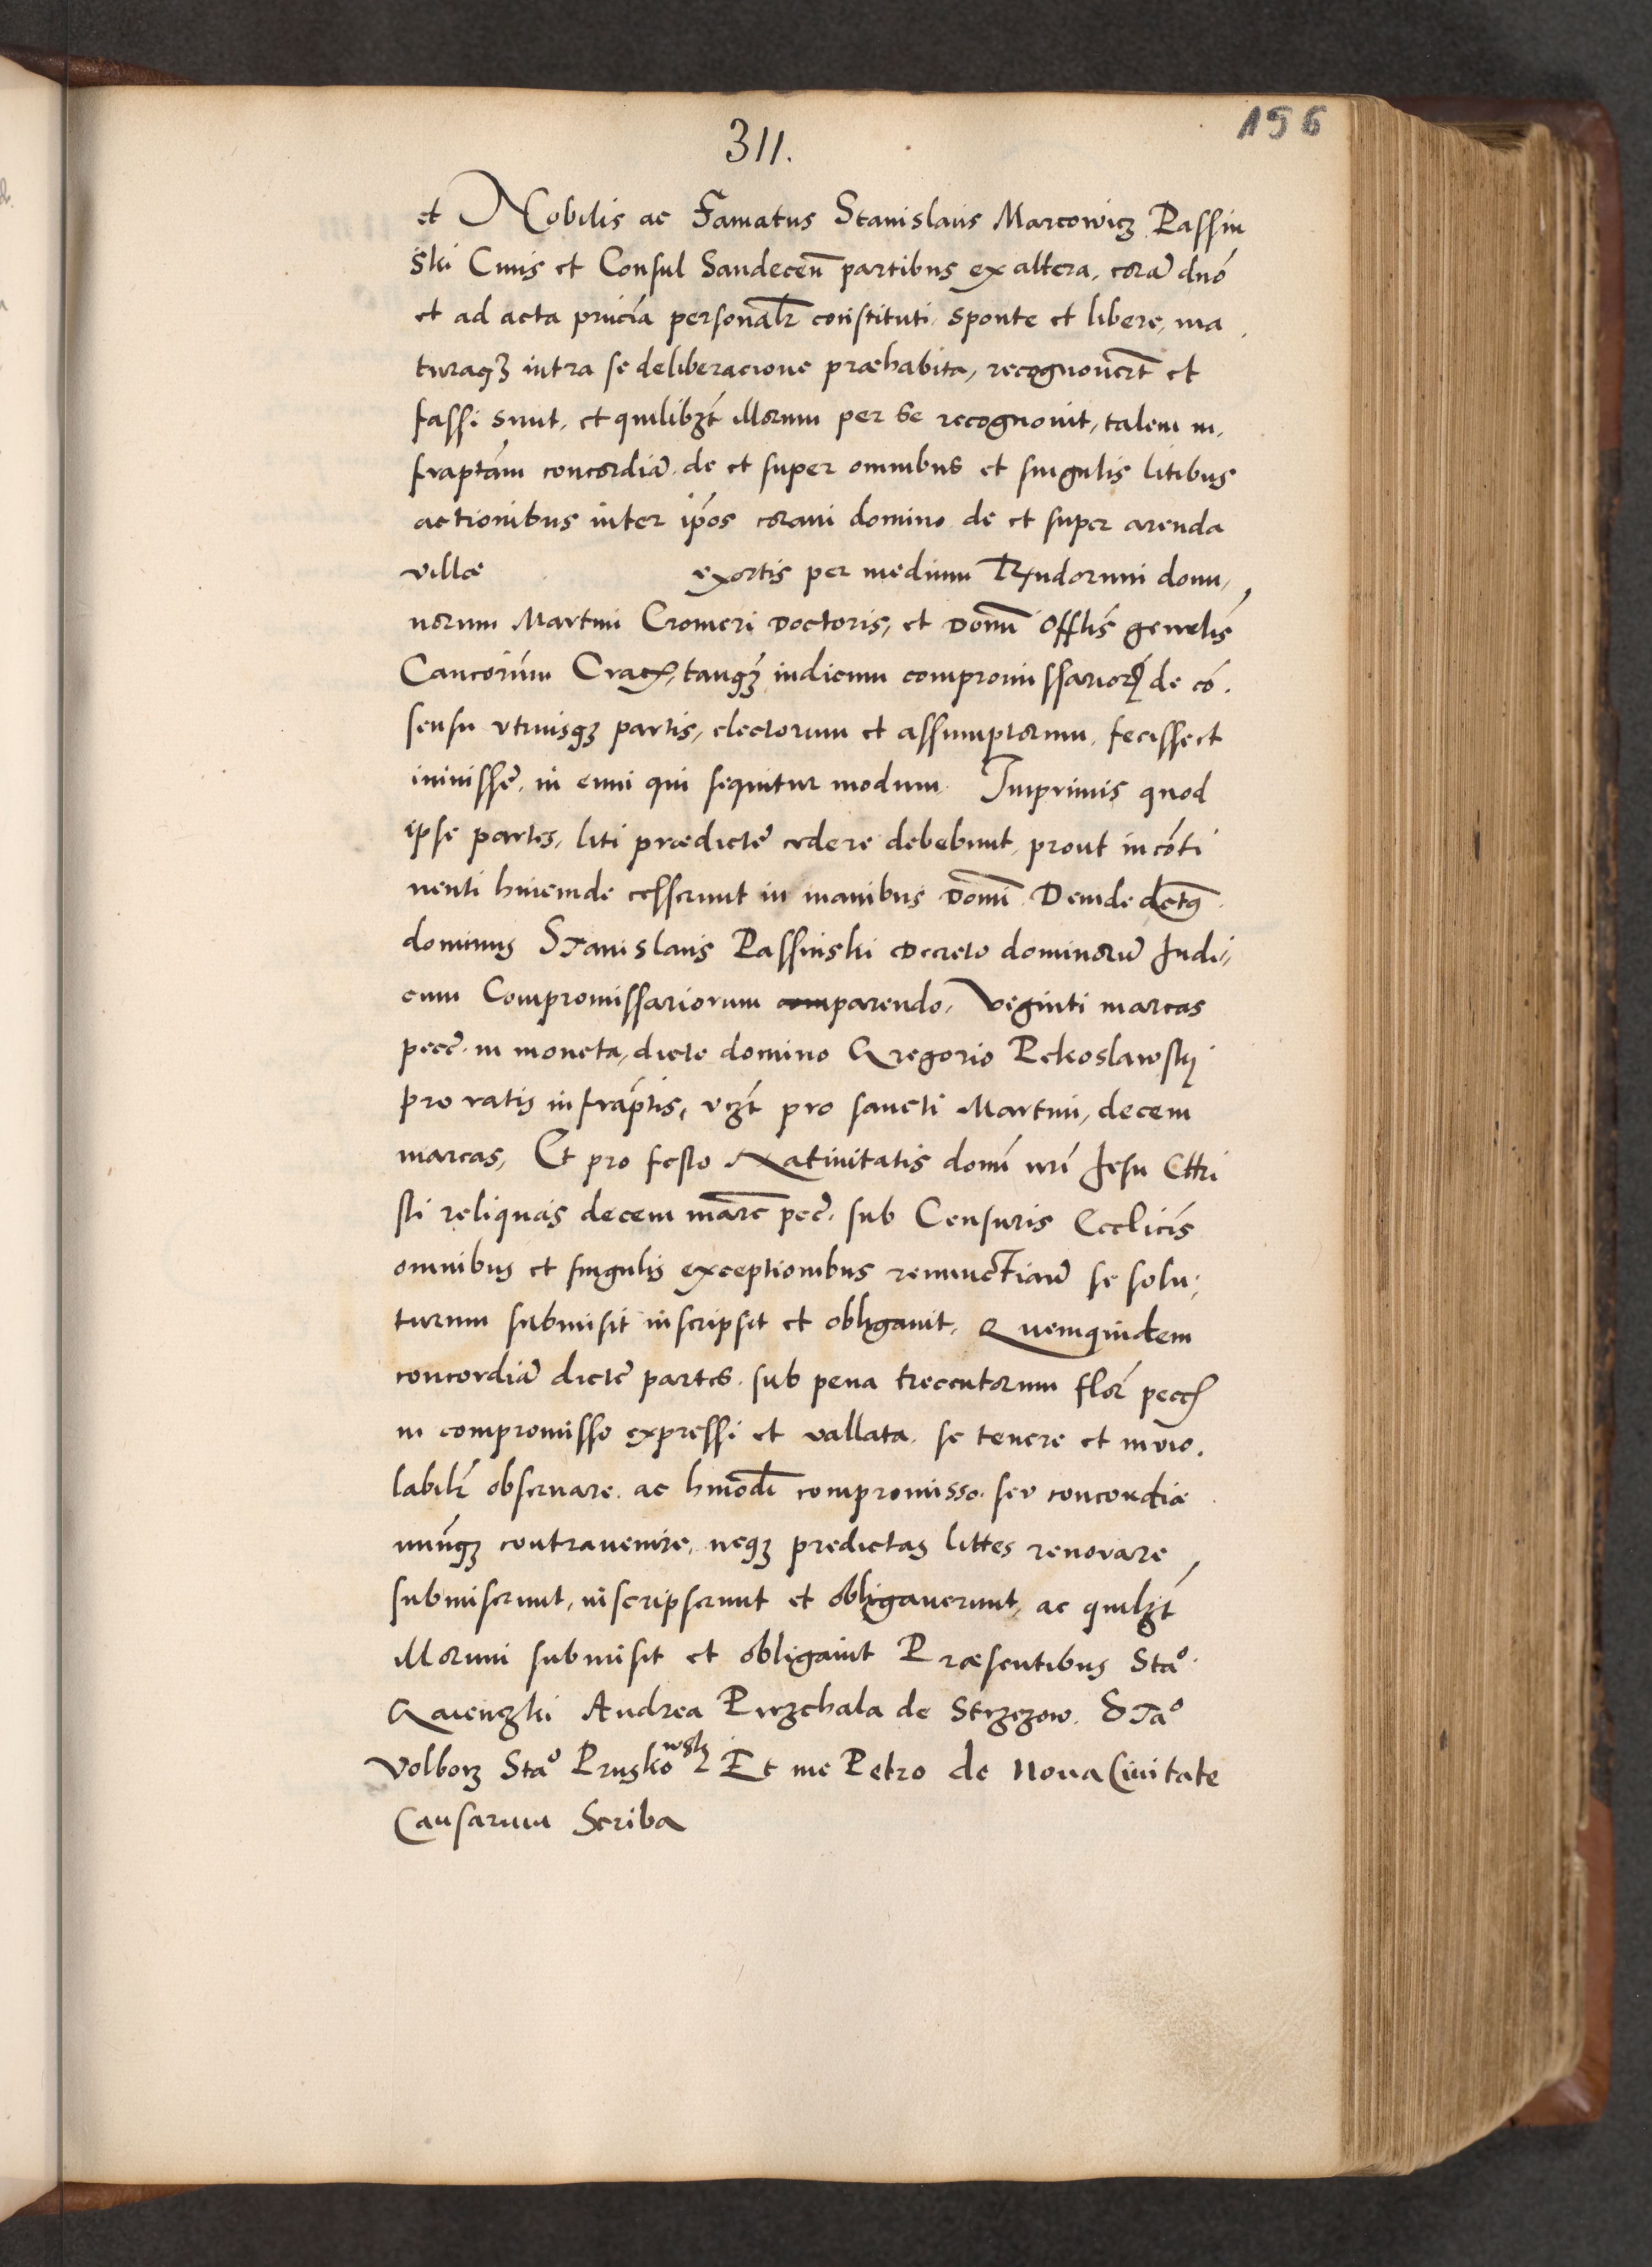 156
311.
et Nobilis ac Famatus Stanislaus Marcowicz Passin
ski Ciuis et Consul Sandeceñ partibus ex altera, corã dno
et ad acta pñcia personalr constituti, sponte et libere, ma
turaqз intra se deliberacione præhabita, recognouert et
fassi sunt, et quilibзt illorum per se recognouit, talem in,
fraptam concordiã de et super omnibus et singulis litibus
actionibus inter ipos coram domino de et super arenda
villæ exortis per medium Rndorum domi,
norum Martini Cromeri Doctoris, et Domi Offlis gernlis
Cancorum Crac, tanqз iudicum compromissarioꝝ de cõ.
sensu vtriusqз partis, electorum et assumptorum, fecisse et
iniuisse, in eum qui sequitur modum. Imprimis quod
ipse partes, liti prædicte cedere debebunt, prout in cõti
nenti hincinde cesserunt in manibus Domi. Deinde
dominus Stanislaus Passinski Decreto dominorũ Judi,,
cum Compromissariorum parendo, Veginti marcas
pecc. in moneta, dicto domino Gregorio Pekoslawskij
pro ratis infraptis, vзt pro sancti Martini, decem
marcas, Et pro festo Natiuitatis domi nri Jesu Chri
sti reliquas decem marc pec. sub Censuris Ecclicis
omnibus et singulis exceptionibus se solu,
turum submisit inscripsit et obligauit, Quamquidem
concordiã dicte partes sub pena trecentorum flor pecc
in compromisso expressi et vallata, se tenere et inuio,
labilr obseruare ac hmodi compromisso seu concordiæ
nunqз contrauenire, neqз predictas littes renovare
submiserunt, inscripserunt et obligauerunt, ac quilзt
illorum submisit et obligauit Præsentibus Stão
Andrea Purzchala de Strzezow. Stão
Volborz Stão Pruskowskj Et me Petro de Noua Ciuitate
Causarum Scriba